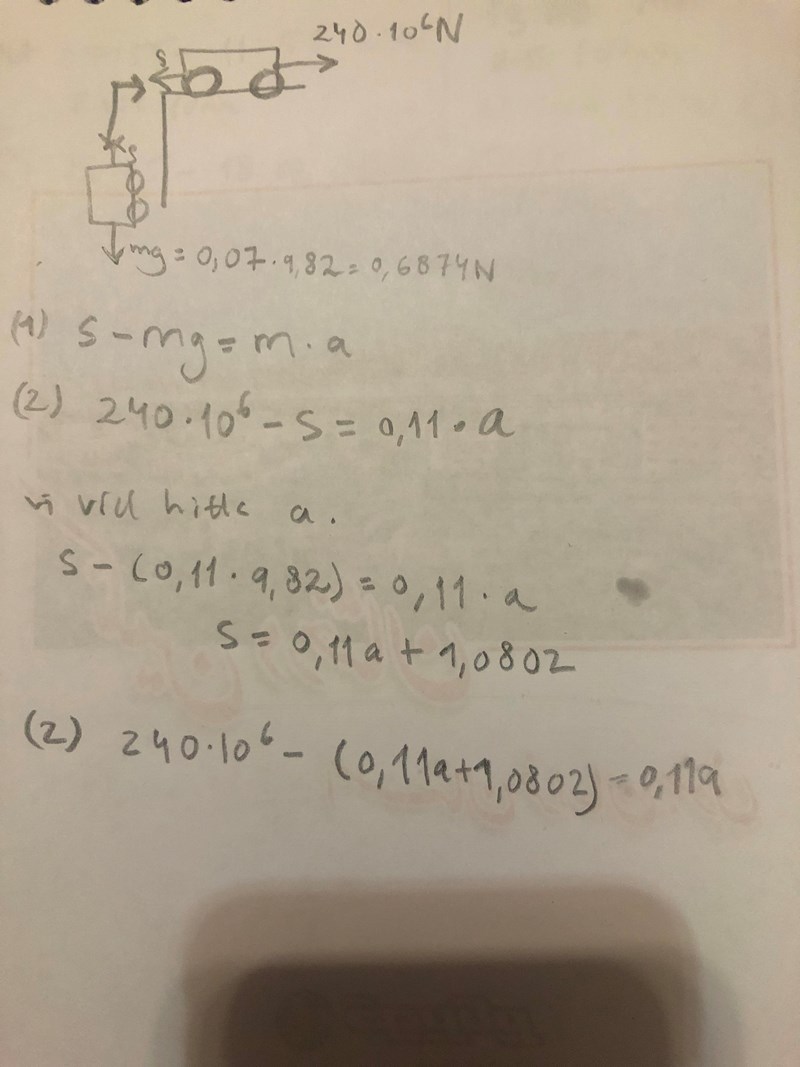 240·10⁶N
S
S
mg = 0,07·9,82 = 0,6874N
(1) S - mg = m · a
(2) 240·10⁶ - S = 0,11 · a
vi vill hitta a.
S - (0,11 · 9,82) = 0,11 · a
S = 0,11a + 1,0802
(2) 240·10⁶ - (0,11a+1,0802) = 0,11a